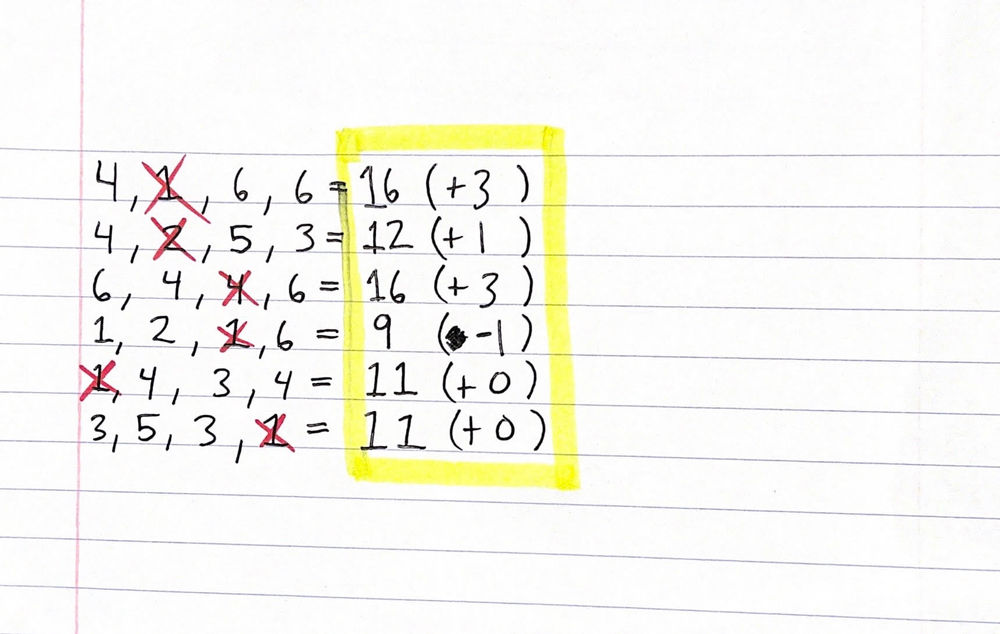 4, 1, 6, 6 = 16 (+3)
4, 2, 5, 3 = 12 (+1)
6, 4, 4, 6 = 16 (+3)
1, 2, 1, 6 = 9 (-1)
1, 4, 3, 4 = 11 (+0)
3, 5, 3, 1 = 11 (+0)